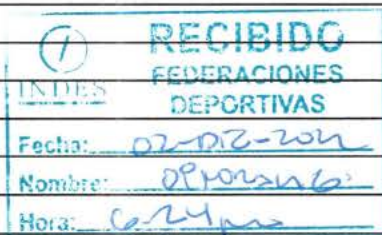 RECIBIDO
INDES
FEDERACIONES
DEPORTIVAS
Fecha: 02-DIC-202
Nombre:
Hora: 6-24 pm